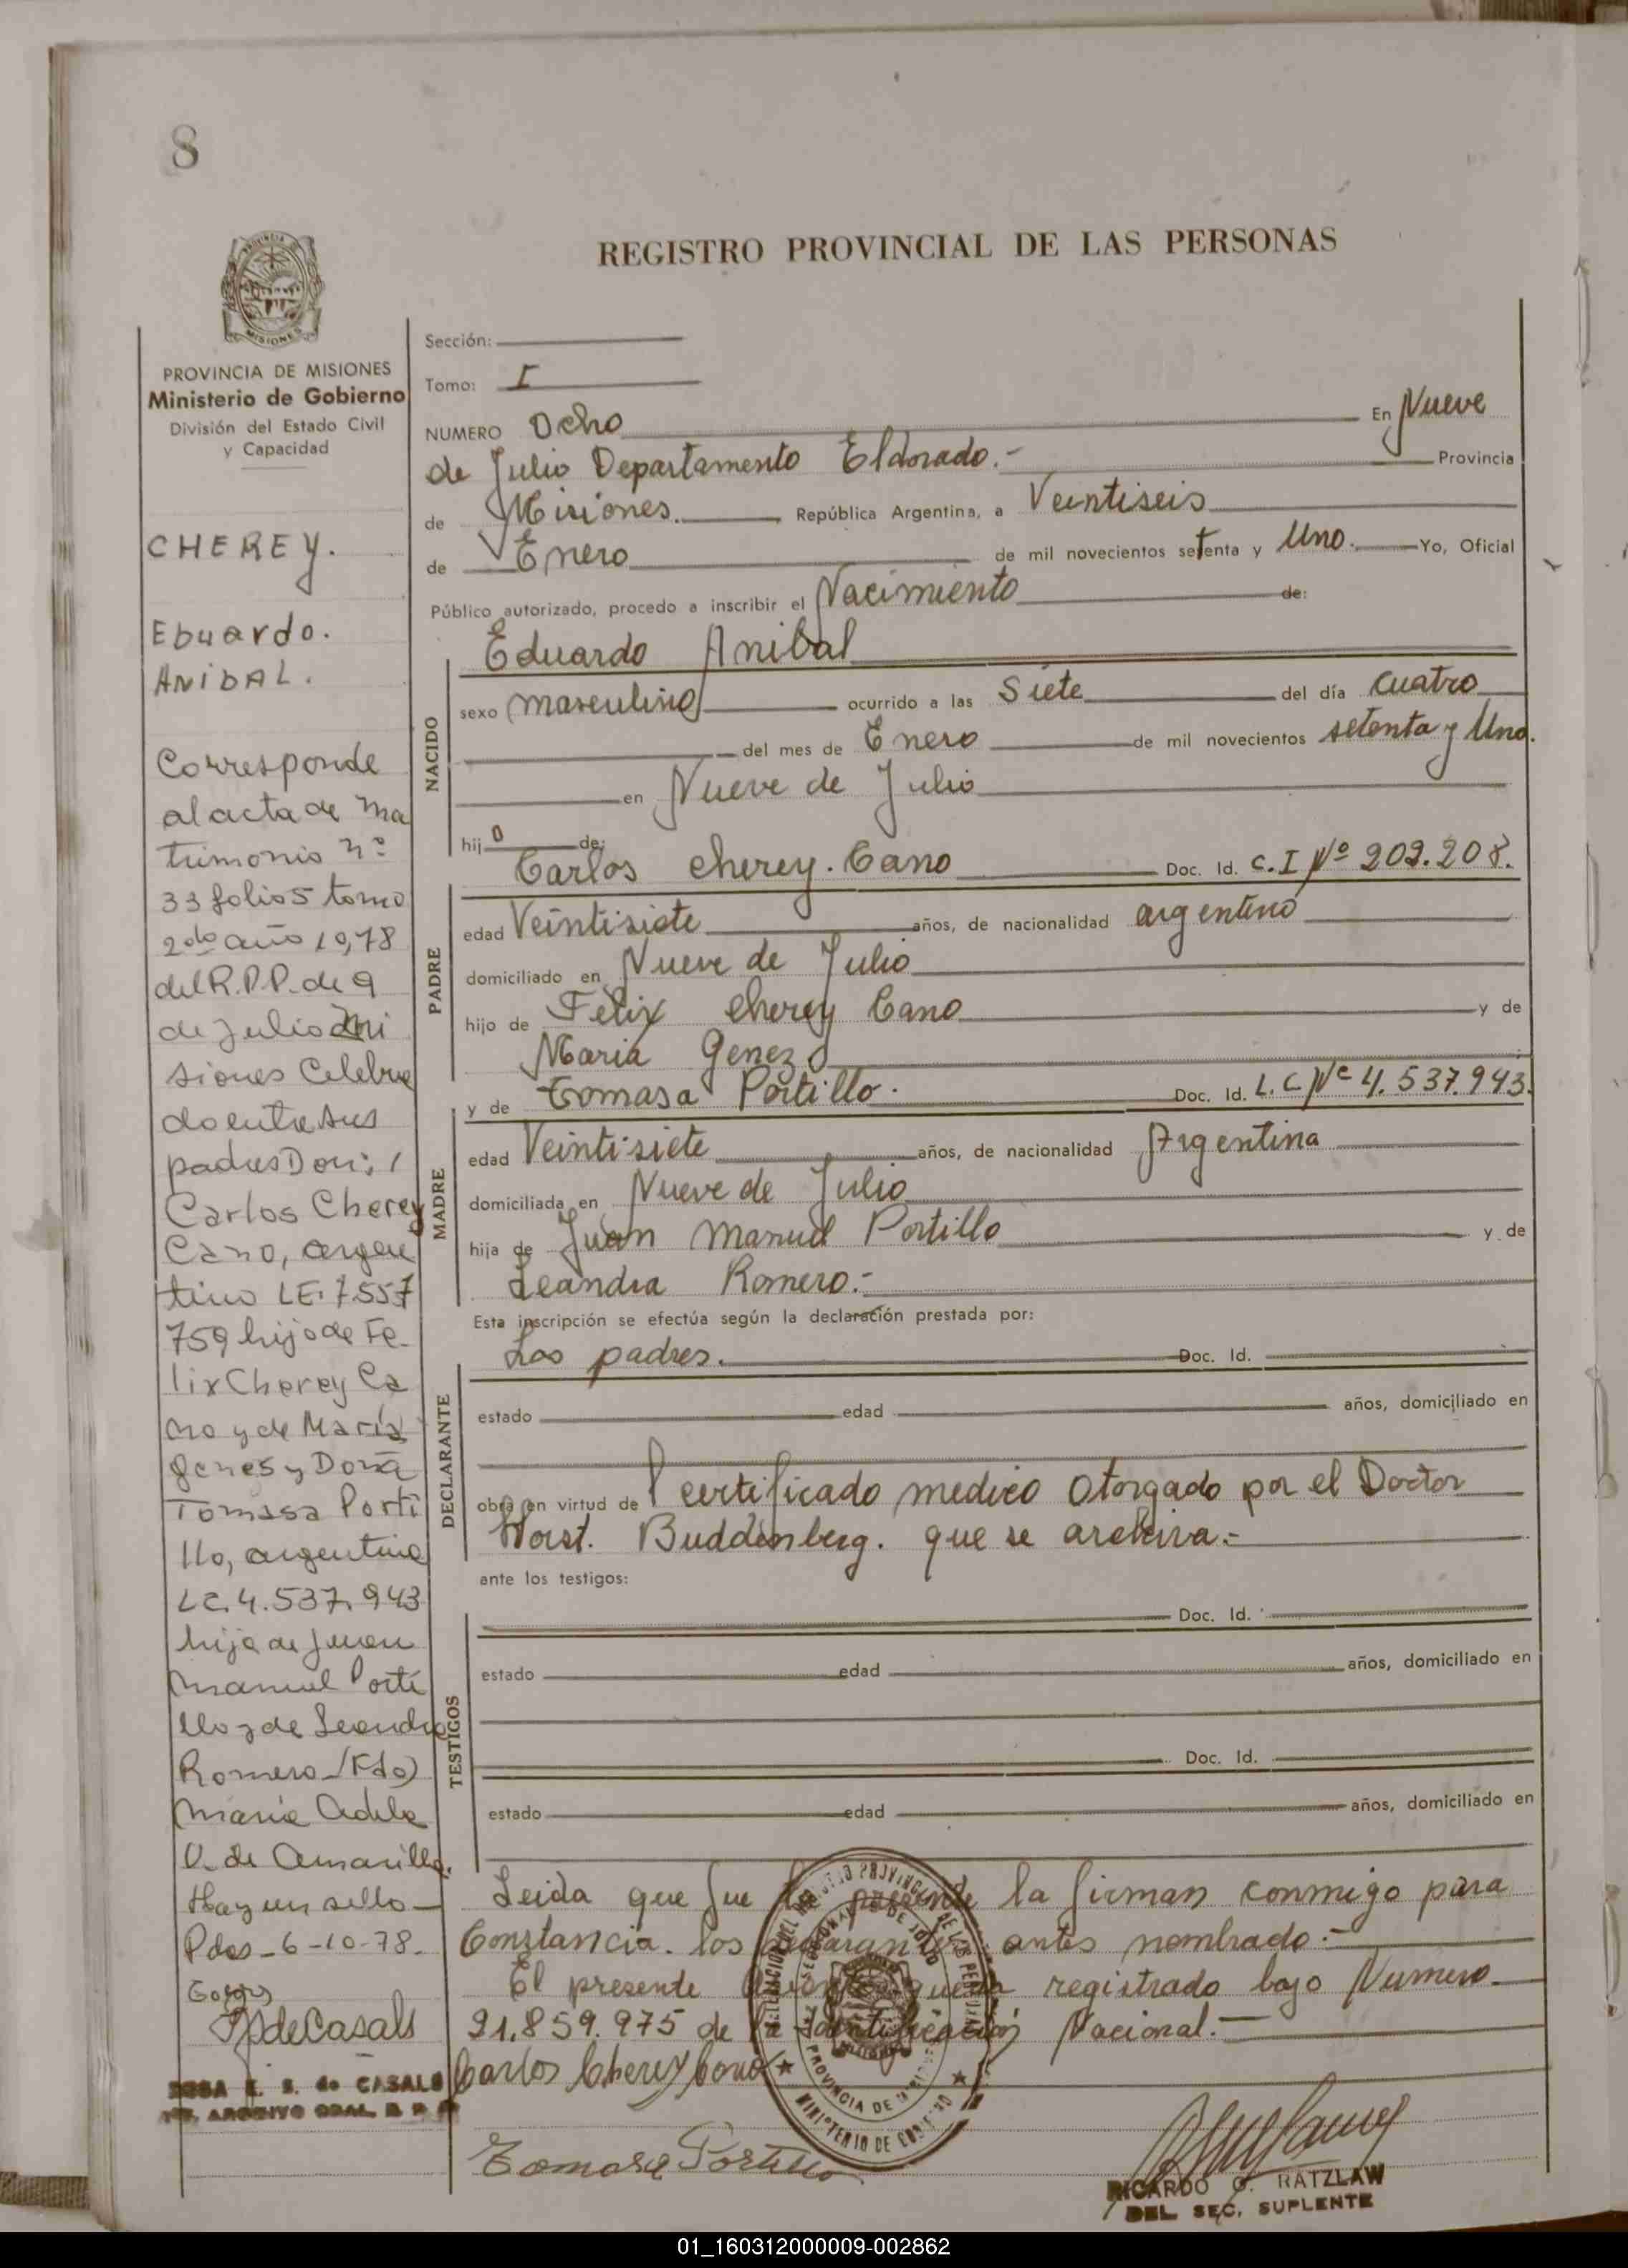 8
REGISTRO PROVINCIAL DE LAS PERSONAS
MISIONES
PROVINCIA DE MISIONES
Ministerio de Gobierno
División del Estado Civil
y Capacidad
CHEREY.
Ebuardo.
ANIBAL.
Corresponde
al acta de ma
trimonio nº
33 folio 5 tomo
2do año 1978
del R.P.P. de 9
de Julio Mi
siones Celebra
do entre sus
padres Don:
Carlos Cherey
Cano, argen
tino LE. 7.557
759 hijo de Fe-
lix Cherey Ca
no y de María
Genes y Doña
Tomasa Porti
llo, argentina
LC. 4.537.943
hija de Juan
Manuel Porti
llo y de Leandra
Romero-(Fdo)
María Adela
V. de Amarilla.
Hay un sello-
Pdas-6-10-78.
deCasals
E. S. de CASALS
ARCHIVO GRAL. R. P. P.
Sección:
Tomo: I
NUMERO Ocho En Nueve
de Julio Departamento Eldorado.- Provincia
de Misiones. República Argentina, a Veintiseis
de Enero de mil novecientos setenta y Uno. Yo, Oficial
Público autorizado, procedo a inscribir el Nacimiento de:
Eduardo Anibal
NACIDO
sexo masculino ocurrido a las Siete del día cuatro
del mes de Enero de mil novecientos setenta y Uno.
en Nueve de Julio
hijo de:
Carlos Cherey. Cano Doc. Id. C.I Nº 202.208.
PADRE
edad Veintisiete años, de nacionalidad argentino
domiciliado en Nueve de Julio
hijo de Felix Cherey Cano y de
Maria Genez
y de Tomasa Portillo. Doc. Id. L.C Nº 4.537.943.
MADRE
edad Veintisiete años, de nacionalidad Argentina
domiciliada en Nueve de Julio
hija de Juan Manuel Portillo y de
Leandra Romero.-
Esta inscripción se efectúa según la declaración prestada por:
Los padres. Doc. Id.
DECLARANTE
estado edad años, domiciliado en
obra en virtud de certificado medico otorgado por el Doctor
Horst. Buddenberg. que se archiva.-
ante los testigos:
Doc. Id.
TESTIGOS
estado edad años, domiciliado en
Doc. Id.
estado edad años, domiciliado en
Leida que fue la presente la firman conmigo para
Constancia. los declarantes antes nombrado.-
El presente queda registrado bajo Numero
21.859.975 de la Identificación Nacional.-
Carlos Cherey Cano
PROVINCIA DE MISIONES
MINISTERIO DE GOBIERNO
Tomasa Portillo
RICARDO G. RATZLAW
DEL SEC. SUPLENTE
01_160312000009-002862